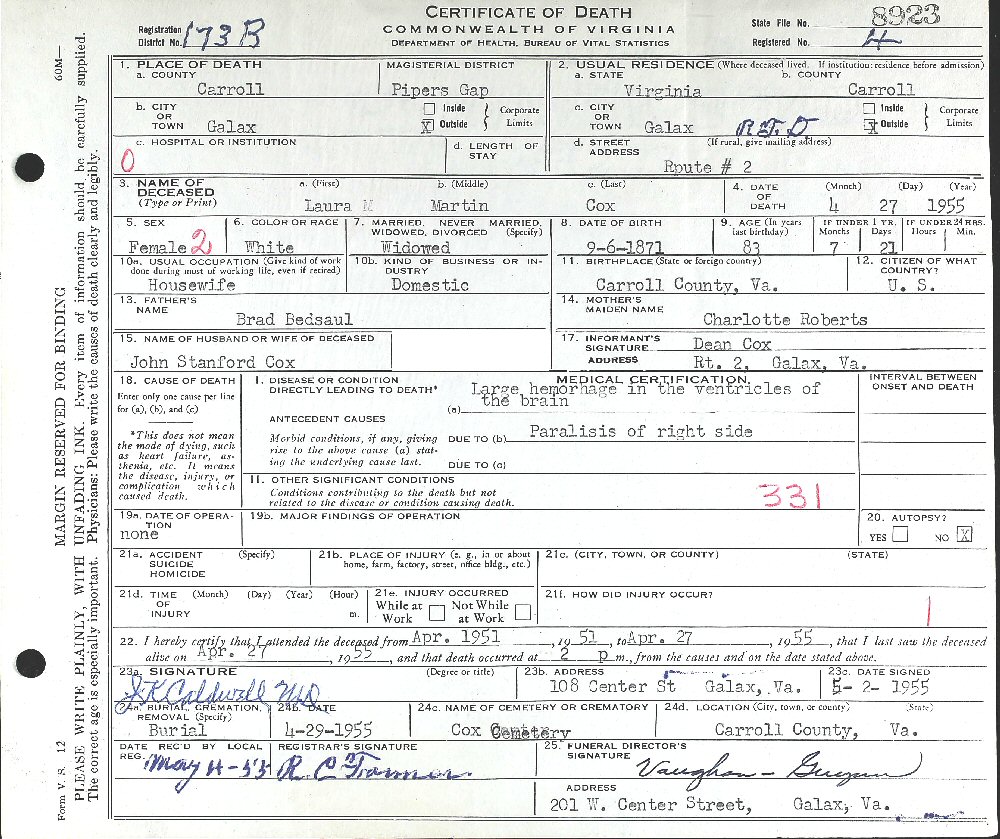 CERTIFICATE OF DEATH
COMMONWEALTH OF VIRGINIA
DEPARTMENT OF HEALTH, BUREAU OF VITAL STATISTICS
Registration District No. 173B
State File No. 8923
Registered No. 4
60M—
MARGIN RESERVED FOR BINDING
Form V. S. 12
PLEASE WRITE PLAINLY, WITH UNFADING INK. Every item of information should be carefully supplied.
The correct age is especially important. Physicians: Please write the causes of death clearly and legibly.
1. PLACE OF DEATH
a. COUNTY
Carroll
MAGISTERIAL DISTRICT
Pipers Gap
2. USUAL RESIDENCE (Where deceased lived. If institution: residence before admission)
a. STATE
Virginia
b. COUNTY
Carroll
b. CITY OR TOWN Galax
Inside
X Outside
Corporate Limits
c. CITY OR TOWN Galax RFD
Inside
X Outside
Corporate Limits
c. HOSPITAL OR INSTITUTION
0
d. LENGTH OF STAY
d. STREET ADDRESS
(If rural, give mailing address)
Rpute # 2
3. NAME OF DECEASED
(Type or Print)
a. (First)
Laura M
b. (Middle)
Martin
c. (Last)
Cox
4. DATE OF DEATH
(Month) (Day) (Year)
4 27 1955
5. SEX
Female 2
6. COLOR OR RACE
White
7. MARRIED, NEVER MARRIED, WIDOWED, DIVORCED (Specify)
Widowed
8. DATE OF BIRTH
9-6-1871
9. AGE (In years last birthday)
83
IF UNDER 1 YR.
Months Days
7 21
IF UNDER 24 HRS.
Hours Min.
10a. USUAL OCCUPATION (Give kind of work done during most of working life, even if retired)
Housewife
10b. KIND OF BUSINESS OR INDUSTRY
Domestic
11. BIRTHPLACE (State or foreign country)
Carroll County, Va.
12. CITIZEN OF WHAT COUNTRY?
U. S.
13. FATHER'S NAME
Brad Bedsaul
14. MOTHER'S MAIDEN NAME
Charlotte Roberts
15. NAME OF HUSBAND OR WIFE OF DECEASED
John Stanford Cox
17. INFORMANT'S SIGNATURE Dean Cox
ADDRESS Rt. 2, Galax, Va.
18. CAUSE OF DEATH
Enter only one cause per line for (a), (b), and (c)
*This does not mean the mode of dying, such as heart failure, asthenia, etc. It means the disease, injury, or complication which caused death.
MEDICAL CERTIFICATION
INTERVAL BETWEEN ONSET AND DEATH
I. DISEASE OR CONDITION DIRECTLY LEADING TO DEATH*
(a) Large hemorhage in the ventricles of the brain
ANTECEDENT CAUSES
Morbid conditions, if any, giving rise to the above cause (a) stating the underlying cause last.
DUE TO (b) Paralisis of right side
DUE TO (c)
II. OTHER SIGNIFICANT CONDITIONS
Conditions contributing to the death but not related to the disease or condition causing death.
331
19a. DATE OF OPERATION
none
19b. MAJOR FINDINGS OF OPERATION
20. AUTOPSY?
YES NO X
21a. ACCIDENT SUICIDE HOMICIDE (Specify)
21b. PLACE OF INJURY (e. g., in or about home, farm, factory, street, office bldg., etc.)
21c. (CITY, TOWN, OR COUNTY) (STATE)
21d. TIME OF INJURY (Month) (Day) (Year) (Hour) m.
21e. INJURY OCCURRED
While at Work Not While at Work
21f. HOW DID INJURY OCCUR?
1
22. I hereby certify that I attended the deceased from Apr. 1951, 1951, to Apr. 27, 1955, that I last saw the deceased
alive on Apr. 27, 1955, and that death occurred at 2 p m., from the causes and on the date stated above.
23a. SIGNATURE (Degree or title)
J K Caldwell MD
23b. ADDRESS
108 Center St Galax, Va.
23c. DATE SIGNED
5-2-1955
24a. BURIAL, CREMATION, REMOVAL (Specify)
Burial
24b. DATE
4-29-1955
24c. NAME OF CEMETERY OR CREMATORY
Cox Cemetery
24d. LOCATION (City, town, or county) (State)
Carroll County, Va.
DATE REC'D BY LOCAL REG.
May 4-55
REGISTRAR'S SIGNATURE
25. FUNERAL DIRECTOR'S SIGNATURE
Vaughan - Guynn
ADDRESS
201 W. Center Street, Galax, Va.